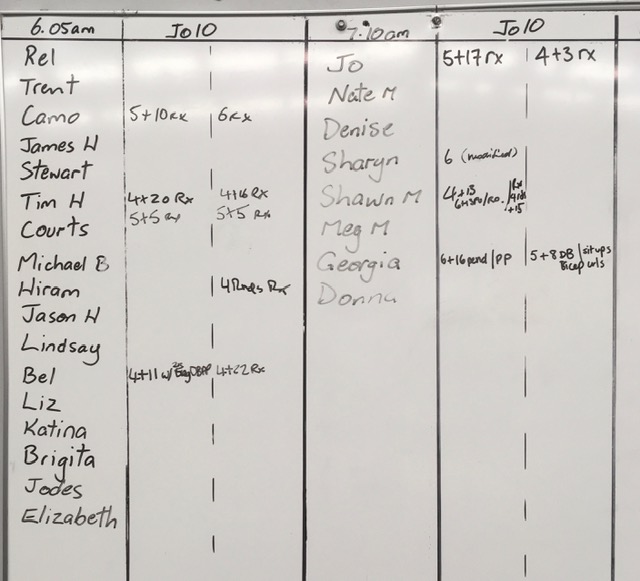 6.05am Jo10 7.10am Jo10
Rel Jo 5+17 rx 4+3 rx
Trent Nate M
Camo 5+10 Rx 6 Rx Denise
James H Sharyn 6 (modified)
Stewart Shawn M 4+15
Tim H 4+20 Rx 4+16 Rx +15
Courts 5+5 Rx 5+5 Rx Meg M
Michael B Georgia 6+16 pend/PP 5+8 DB/situps
Bicep curls
Hiram 4 Rnds Rx Donna
Jason H
Lindsay
Bel 4+11 w/ 4+22 Rx
Liz
Katina
Brigita
Jodes
Elizabeth